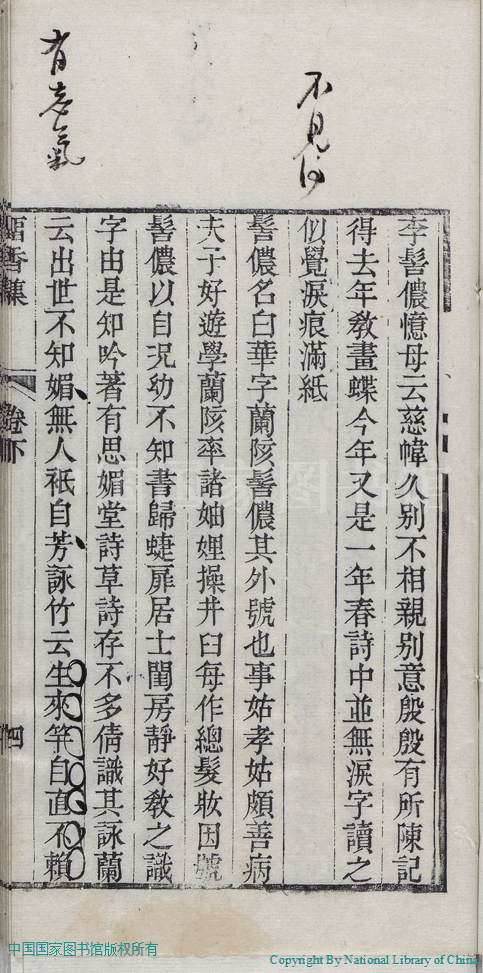 不見得
有老氣
李髻儂憶母云慈幃久别不相親别意殷殷有所陳記
得去年敎畫蝶今年又是一年春詩中並無淚字讀之
似覺淚痕滿紙
髻儂名白華字蘭陔髻儂其外號也事姑孝姑頗善病
夫子好遊學蘭陔率諸妯娌操井臼每作總髮妝因號
髻儂以自况幼不知書歸蜨扉居士閨房靜好敎之識
字由是知吟著有思媚堂詩草詩存不多倩識其詠蘭
云出世不知媚無人祇自芳詠竹云生來竿自直不賴
香集 卷下 四
中国国家图书馆版权所有
Copyright By National Library of China